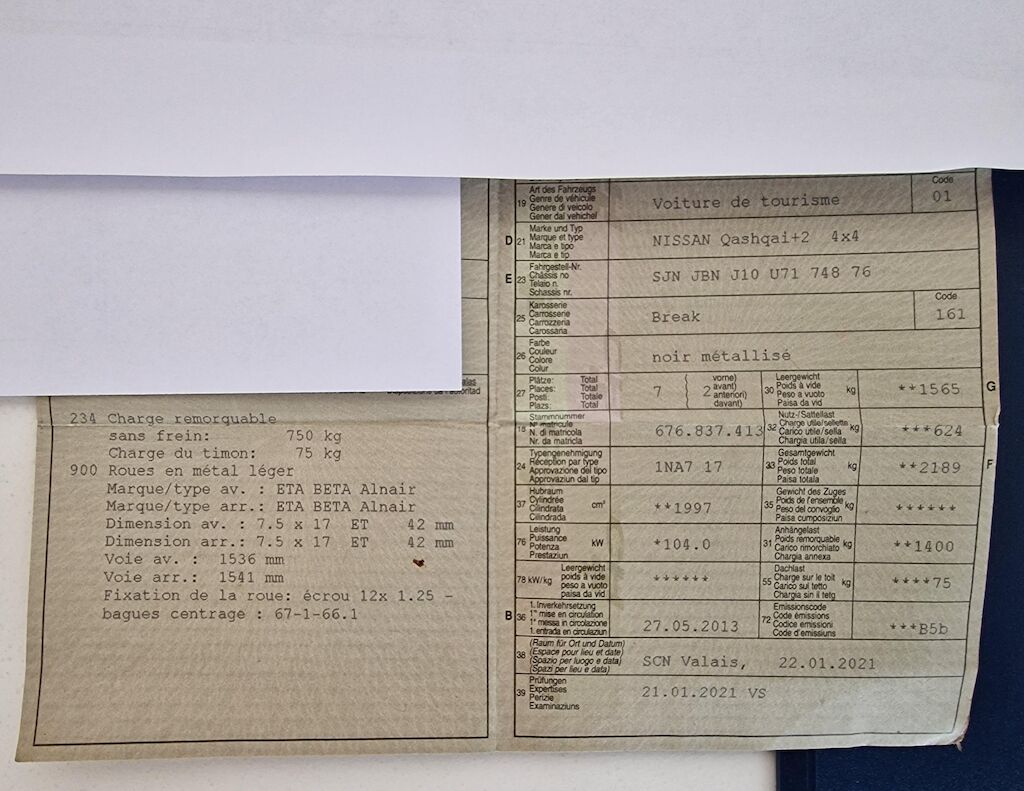 234 Charge remorquable
sans frein: 750 kg
Charge du timon: 75 kg
900 Roues en métal léger
Marque/type av. : ETA BETA Alnair
Marque/type arr.: ETA BETA Alnair
Dimension av. : 7.5 x 17 ET 42 mm
Dimension arr.: 7.5 x 17 ET 42 mm
Voie av. : 1536 mm
Voie arr.: 1541 mm
Fixation de la roue: écrou 12x 1.25 -
bagues centrage : 67-1-66.1
19 Art des Fahrzeugs
Genre de véhicule
Genere di veicolo
Gener dal vehichel
Voiture de tourisme
Code
01
D 21 Marke und Typ
Marque et type
Marca e tipo
Marca e tip
NISSAN Qashqai+2 4x4
E 23 Fahrgestell-Nr.
Châssis no
Telaio n.
Schassis nr.
SJN JBN J10 U71 748 76
25 Karosserie
Carrosserie
Carrozzeria
Carossaria
Break
Code
161
26 Farbe
Couleur
Colore
Colur
noir métallisé
27 Plätze: Total
Places: Total
Posti: Totale
Plazs: Total
7 ( 2 vorne)
avant)
anteriori)
davant)
30 Leergewicht
Poids à vide
Peso a vuoto
Paisa da vid
kg
**1565
G
18 Stammnummer
N° matricule
N. di matricola
Nr. da matricla
676.837.413
32 Nutz-/Sattellast
Charge utile/sellette
Carico utile/sella
Chargia utila/sella
kg
***624
24 Typengenehmigung
Réception par type
Approvazione del tipo
Approvaziun dal tip
1NA7 17
33 Gesamtgewicht
Poids total
Peso totale
Paisa totala
kg
**2189
F
37 Hubraum
Cylindrée
Cilindrata
Cilindrada
cm³
**1997
35 Gewicht des Zuges
Poids de l'ensemble
Peso del convoglio
Paisa cumposiziun
kg
******
76 Leistung
Puissance
Potenza
Prestaziun
kW
*104.0
31 Anhängelast
Poids remorquable
Carico rimorchiato
Chargia annexa
kg
**1400
78 kW/kg Leergewicht
poids à vide
peso a vuoto
paisa da vid
******
55 Dachlast
Charge sur le toit
Carico sul tetto
Chargia sin il tetg
kg
****75
B 36 1. Inverkehrsetzung
1re mise en circulation
1a messa in circolazione
1. entrada en circulaziun
27.05.2013
72 Emissionscode
Code émissions
Codice emissioni
Code d'emissiuns
***B5b
38 (Raum für Ort und Datum)
(Espace pour lieu et date)
(Spazio per luogo e data)
(Spazi per lieu e data)
SCN Valais, 22.01.2021
39 Prüfungen
Expertises
Perizie
Examinaziuns
21.01.2021 VS